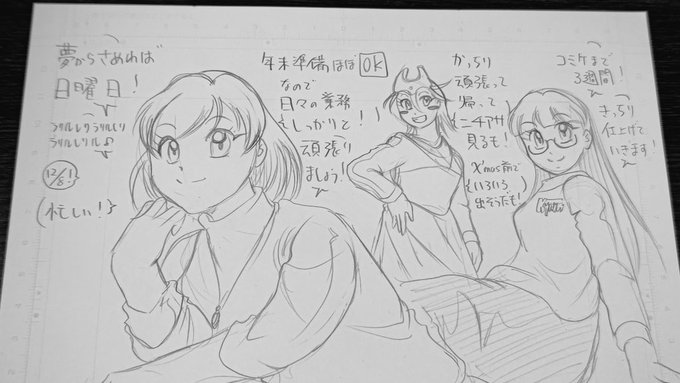 夢からさめれば
日曜日!
ラリルレリラリルレリ
ラリルレリル♪
12/8!!
(忙しい!)
年末準備ほぼOK
なので
日々の業務
もしっかりと!
頑張り
ましょう!
かっちり
頑張って
帰って
ニチアサ
見るも!
X'mas前で
いろいろ
出そうだも!
コミケまで
3週間!
きっちり
仕上げて
いきます!